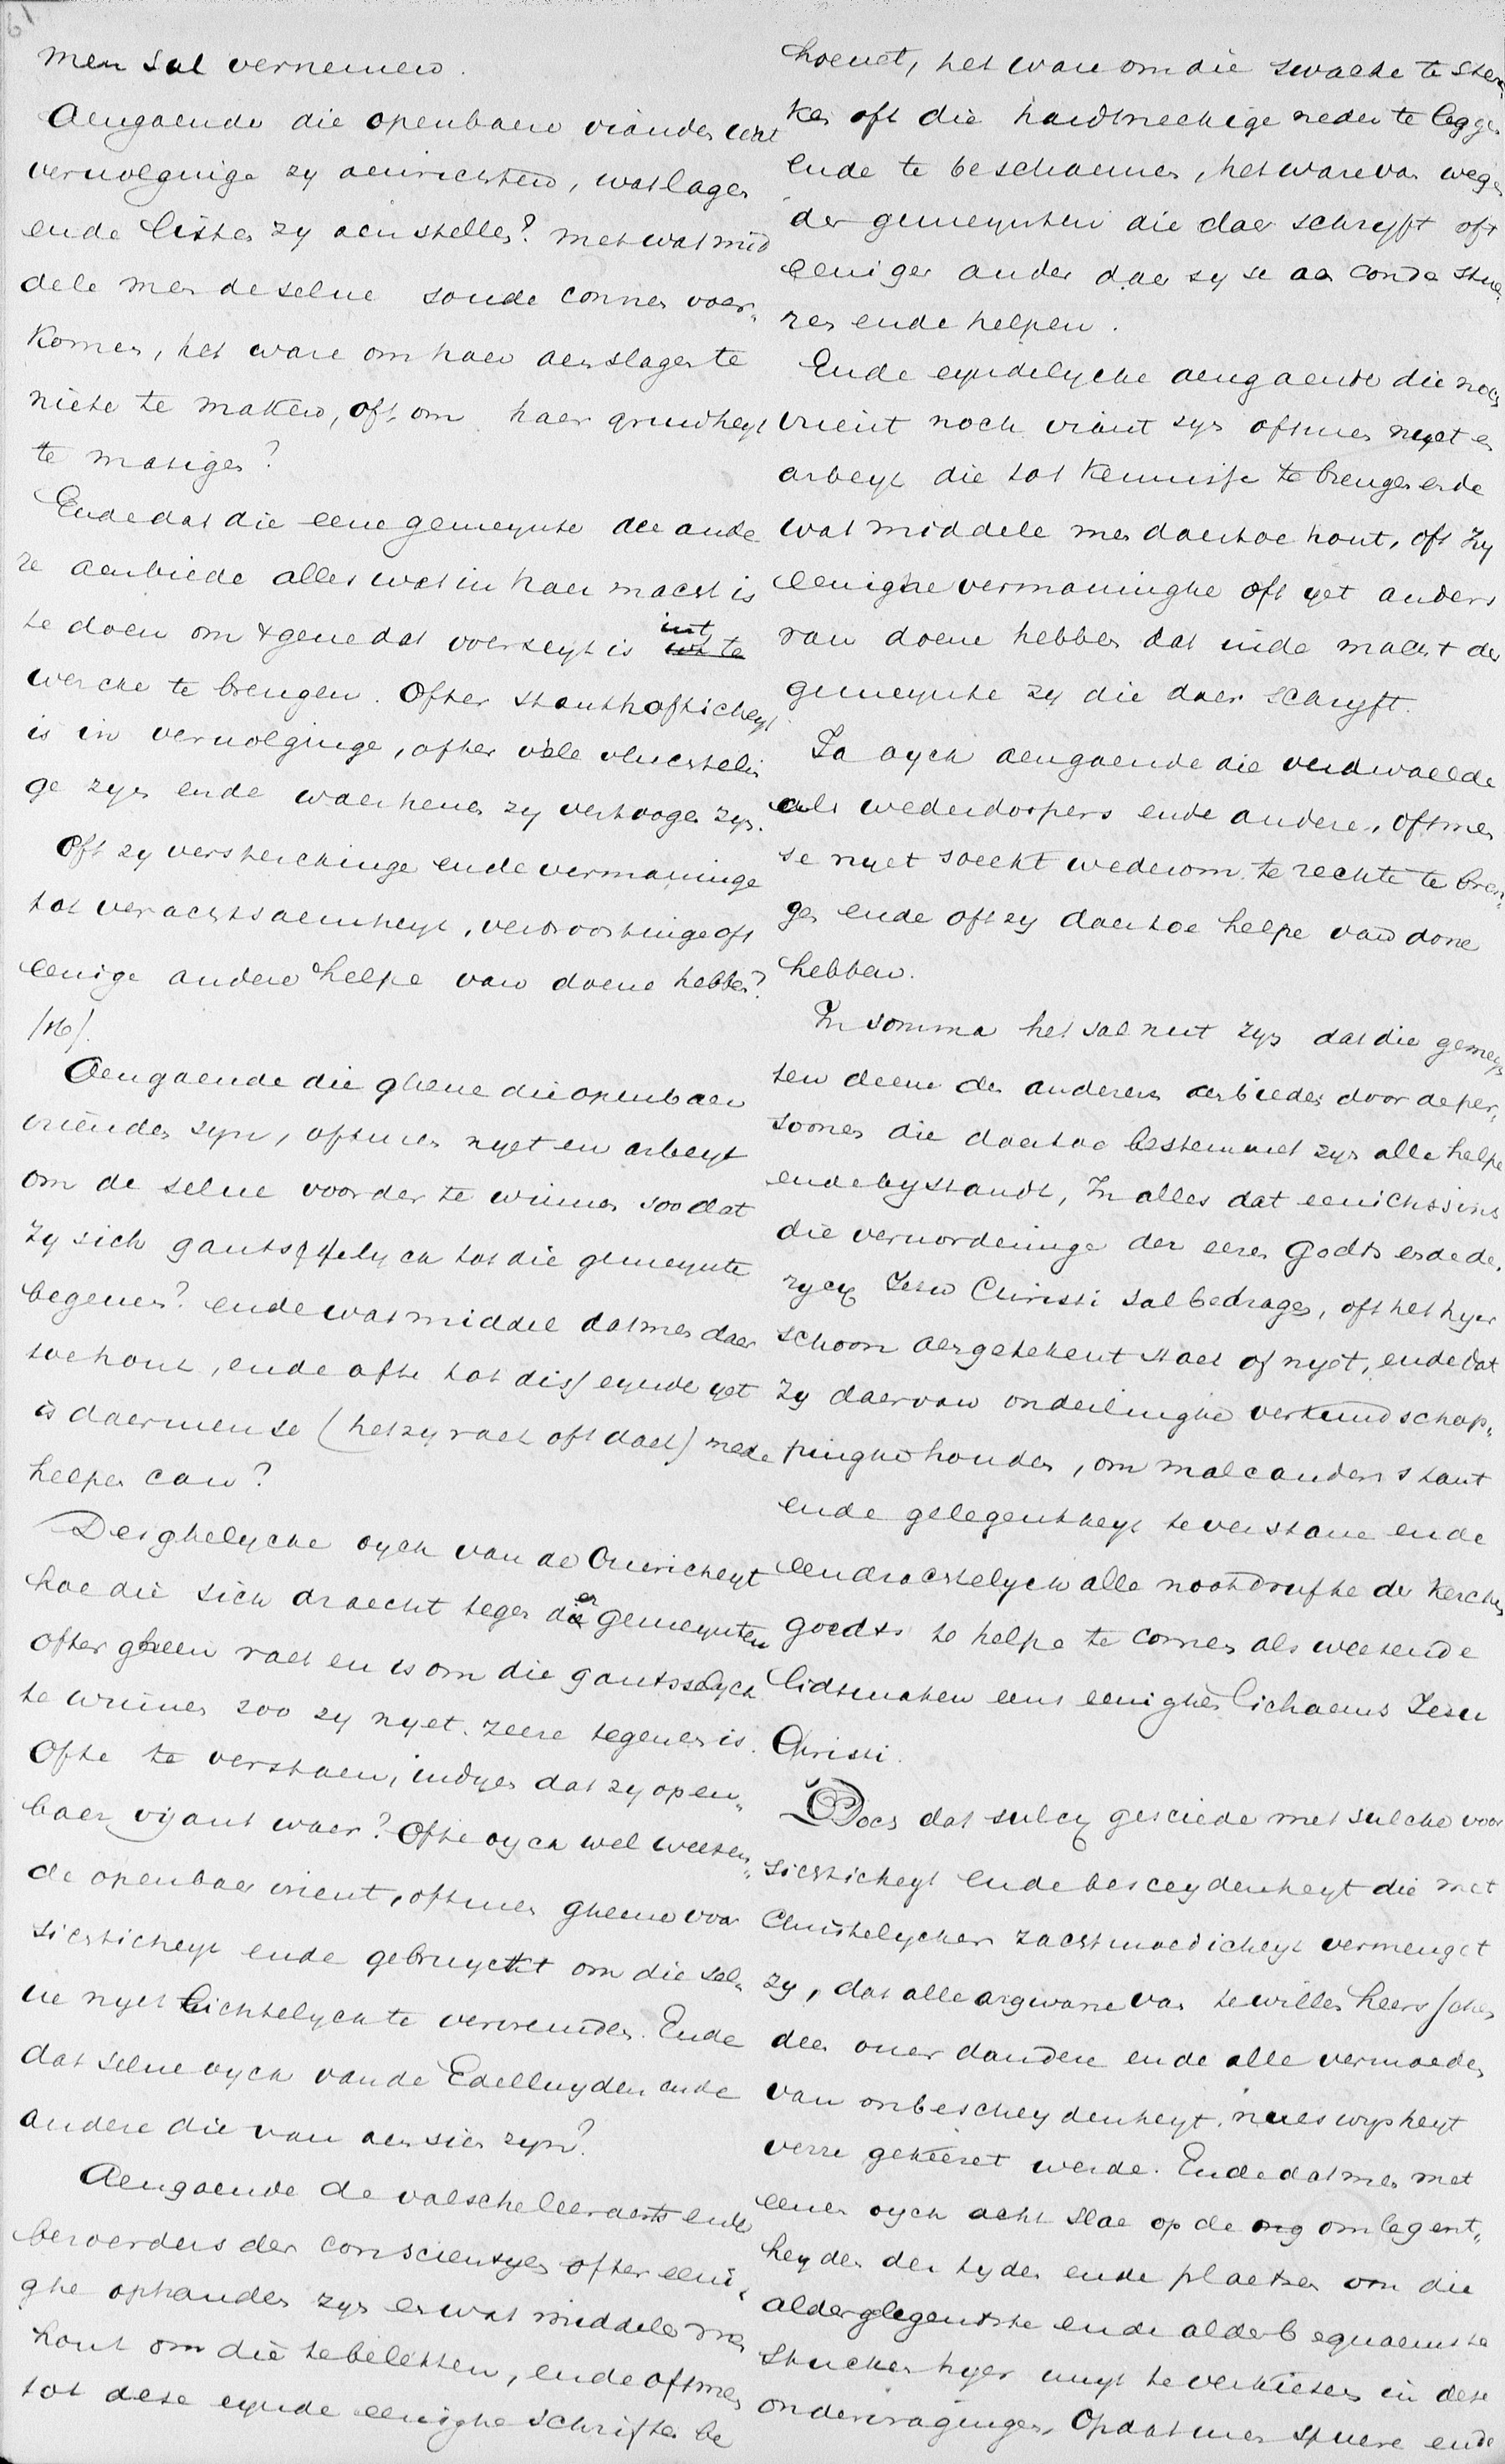 61
men sal vernemen.
Aengaende die openbaere vianden wat
vervolginge zy aenrichten, wat lagen
ende listen zy aenstellen? met wat mid
dele men deselue soude connen voor„
komen, het ware om haer aenslagen te
niete te maken, oft om haer gruwheyt
te matigen?
Ende dat die eene gemeynte die ande
re aenbiede alles wat in haer macht is
te doen om tgene dat voerseyt is int
wercke te brengen. Ofter stanthafticheyt
is in vervolginge, ofter vele vluchtelin
ge zyn ende waerhenen zy vertoogen zyn.
Oft zy versterckinge ende vermaninge
tot verachtsaemheyt, vertroostinge oft
eenige andere helpe van doene hebben?
/16/.
Aengaende die ghene die openbaer
vrienden zyn, oftmen nyet en arbeyt
om de selue voorder te winnen soo dat
zy sich gantsselyck tot die gemeynte
begeuen? ende wat middel datmen daer
toe hout, ende ofte tot diss eynde yet
is daermen se (hetzy raet oft daet) mede
helpen can?
Desghelycke oyck van de Ouericheyt
hoe die sich draecht tegen der gemeynten
ofter gheen raet en is om die gantsselyck
te winnen zoo zy nyet zeere tegenen is.
Ofte te verstaen, indyen dat zy open„
baer vyant waer? Ofte oyck wel weesen„
de openbaer vrient, oftmen gheene voor
sichticheyt ende gebruyckt om die sel„
ue nyet lichtelyck te vervremden. Ende
dat selue oyck van de Edelluyden ende
andere die van aensien zyn?
Aengaende de valsche leeraerts ende
beroerders der conscientyen ofter eeni„
ghe ophanden zyn en wat middele men
hout om die te beletten, ende oftmen
tot dese eynde eenighe schriften be
hoeuet, het ware om die swacke te ster„
ken oft die hardtneckige neder te leggen
ende te beschaemen, het ware van wegen
der gemeynten die daer schryft oft
eeniger ander daer zy se aen conde stue„
ren ende helpen.
Ende eyndelycke aengaende die noch
vrient noch viant zyn oftmen nyet en
arbeyt die tot kennisse te brengen ende
wat middele men daertoe hout, oft zy
eenighe vermaninghe oft yet anders
van doene hebben dat inde macht der
gemeynte zy die daer schryft.
Ja oyck aengaende die verdwaelde
als wederdoopers ende andere, oftmen
se nyet soeckt wederom te rechte te bren„
gen ende oft zy daertoe helpe van done
hebben.
In somma het sal nut zyn dat die gemeyn
ten deene den anderen aenbieden door de per„
soonen die daertoe bestemmet zyn alle helpe
ende bystandt, In alles dat eenichssins
die vervorderinge der eeren Godts ende des
rycx Jesu Christi sal bedragen, oft het hyer
schoon aengetekent staet of nyet, ende dat
zy daervan onderlinghe verkundschap„
pinghe houden, om malcanders stant
ende gelegentheyt te verstane ende
eendrachtelyck alle nootdrufte der kercken
goedts te helpe te comen als weesende
lidtmaten eens eenighen lichaems Jesu
Christi.
Doch dat sulcx gesciede met sulcke voor
sichticheyt ende bescheydenheyt die met
Christelycker zachtmoedicheyt vermenget
zy, dat alle argwane van te willen heersschen
deen ouer dandere ende alle vermoeden
van onbescheydenheyt, nueswysheyt
verre gekeeret werde. Ende datmen met
eenen oyck acht slae op de omlegent„
heyden der tyden ende plaetsen om die
aldergelegentste ende alderbequaemste
stucken hyer uuyt te verkiesen in dese
ondervraginge, Opdatmen spuere ende